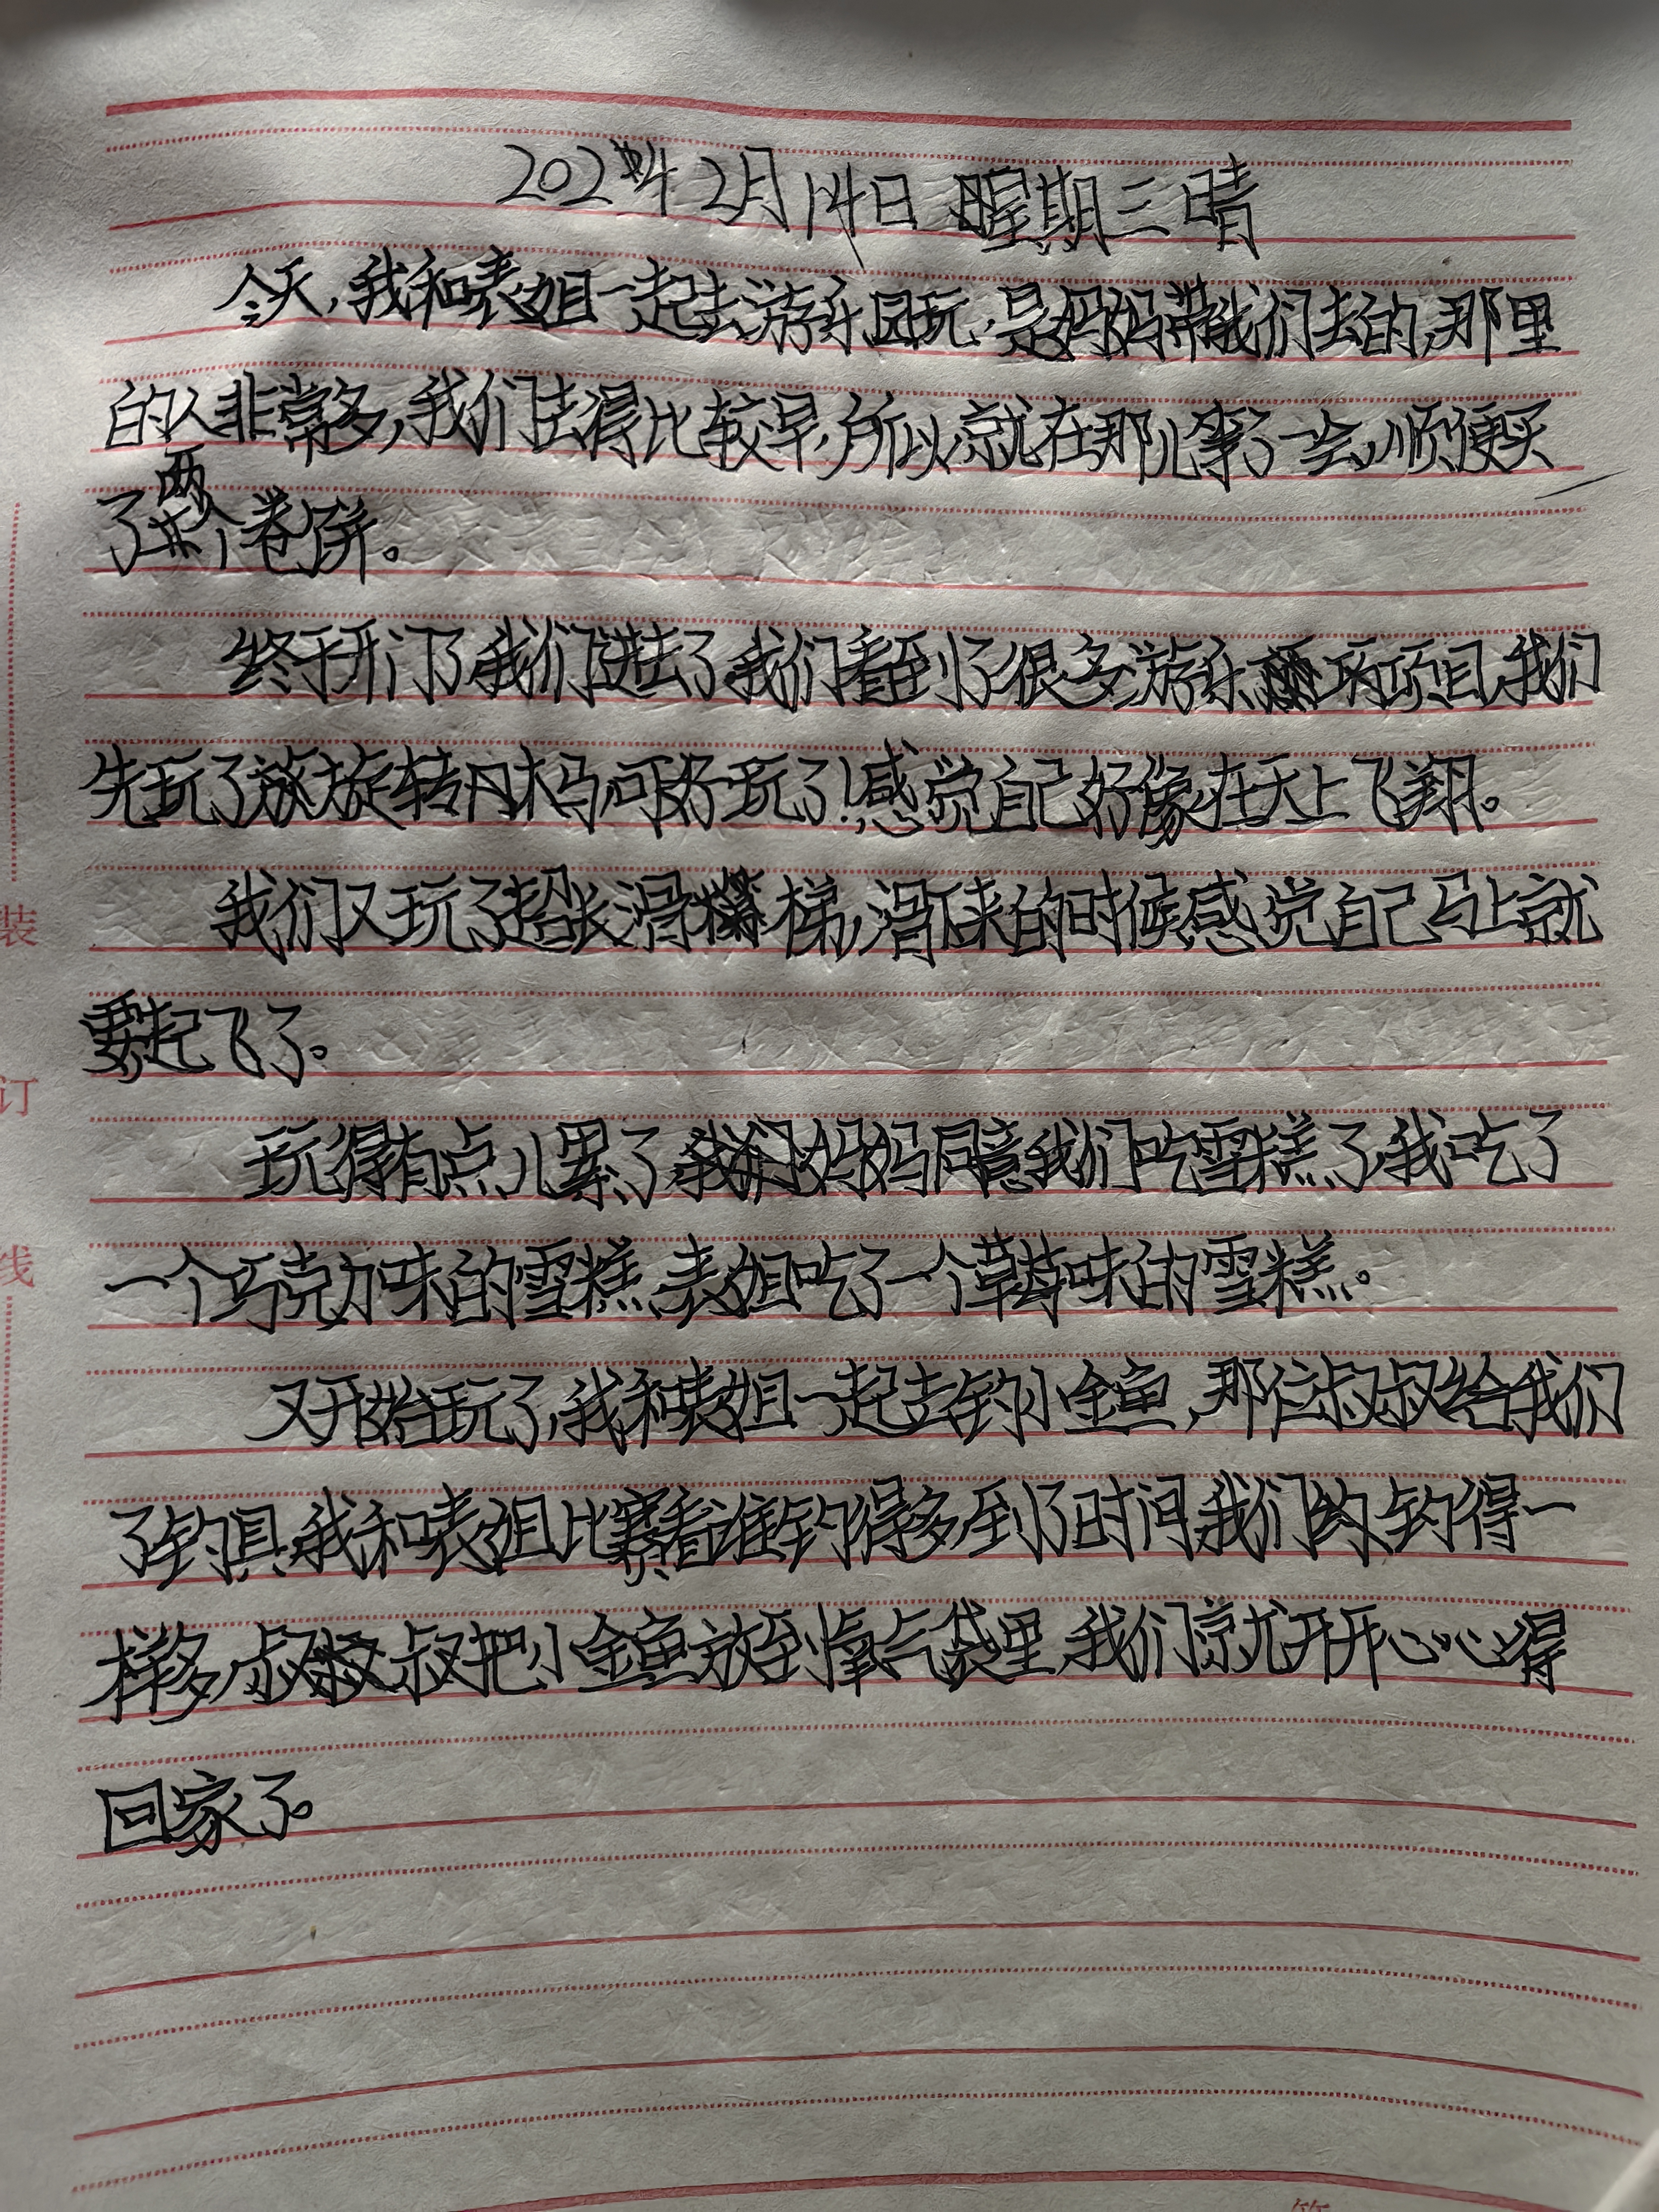 2024 2月14日 星期三 晴
今天,我和表姐一起去游乐园玩,是妈妈带我们去的,那里
的人非常多,我们去得比较早,所以就在那儿等了一会,顺便买
了两个卷饼。
终于开门了,我们进去了,我们看到了很多游乐项目,我们
先玩了旋转木马,可好玩了!感觉自己好像在天上飞翔。
我们又玩了超长滑梯,滑下来的时候感觉自己马上就
要起飞了。
玩得有点儿累了,妈妈同意我们吃雪糕了,我吃了
一个巧克力味的雪糕,表姐吃了一个草莓味的雪糕。
又开始玩了,我和表姐一起去钓小金鱼,那位叔叔给我们
了钓具,我和表姐比赛看谁钓得多,到了时间,我们钓得一
样多,叔叔把小金鱼放到氧气袋里,我们就开开心心得
回家了。
装
订
线